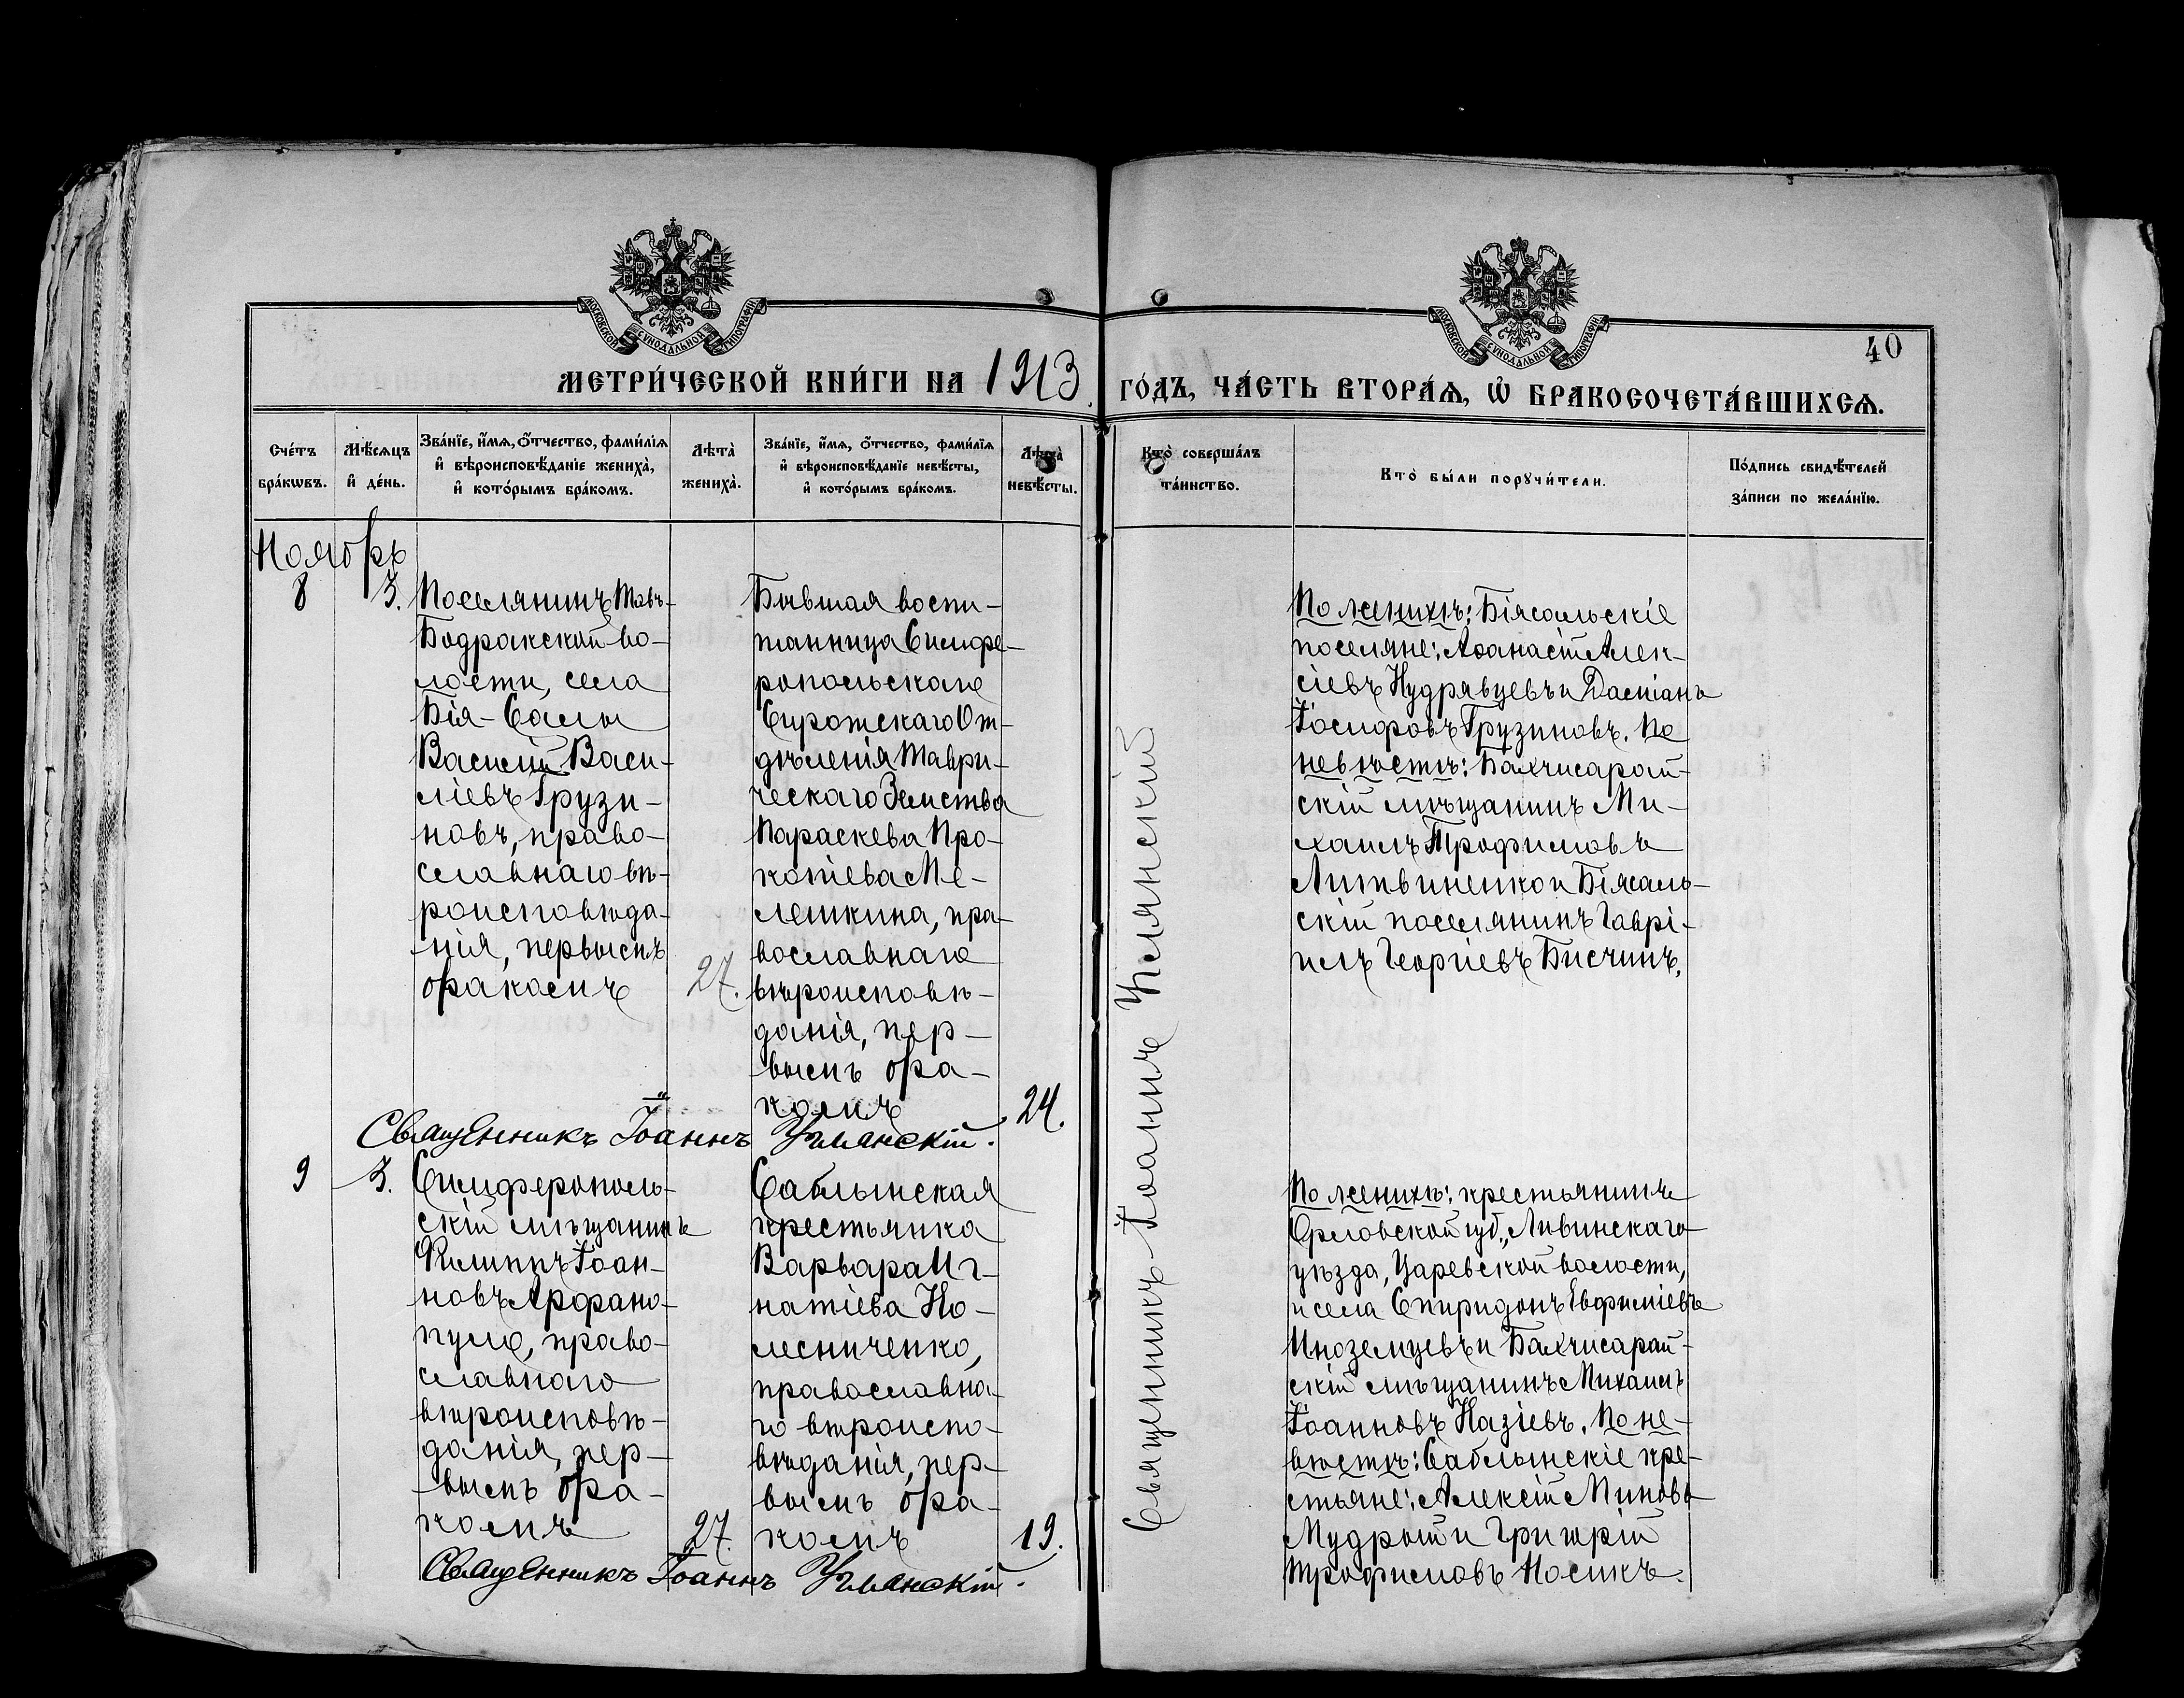 МОСКОВСКОЙ СѴНОДАЛЬНОЙ ТИПОГРАФІИ
МОСКОВСКОЙ СѴНОДАЛЬНОЙ ТИПОГРАФІИ
40
МЕТРИ́ЧЕСКОЙ КНИ́ГИ НА 1913 ГО́ДЪ, ЧА́СТЬ ВТОРА́Ѧ, Ѡ҆ БРАКОСОЧЕТА́ВШИХСѦ.
Сче́тъ
бра́кѡвъ.
Мѣ́сѧцъ
и҆ де́нь.
Зва́нїе, и҆́мѧ, о҆́тчество, фами́лїѧ
и҆ вѣроисповѣ́данїе жениха̀,
и҆ кото́рымъ бра́комъ.
Лѣта̀
жениха̀.
Зва́нїе, и҆́мѧ, о҆́тчество, фами́лїѧ
и҆ вѣроисповѣ́данїе невѣ́сты,
и҆ кото́рымъ бра́комъ.
Лѣта̀
невѣ́сты.
Кто̀ соверша́лъ
та́инство.
Кто̀ бы́ли порꙋчи́тели.
По́дпись свидѣ́телей
за́писи по жела́нїю.
Ноябрь
8
3.
Поселянинъ Тавъ-
Бодракской во-
лости, села
Бія-Салы
Василій Васи-
ліевъ Грузи-
новъ, право-
славнаго вѣ-
роисповѣда-
нія, первымъ
бракомъ
27.
Бывшая воспи-
танница Симфе-
ропольскаго
Сиротскаго От-
дѣленія Таври-
ческаго Земства
Параскева Про-
копіева Ме-
лешкина, пра-
вославнаго
вѣроисповѣ-
данія, пер-
вымъ бра-
комъ
24.
Священникъ Іоаннъ Уманскій.
По женихѣ: Біясальскіе
поселяне: Аѳанасій Алек-
сіевъ Кудрявцевъ и Даміанъ
Іосифовъ Грузиновъ. По
невѣстѣ: Бахчисарай-
скій мѣщанинъ Ми-
хаилъ Трофимовъ
Литвиненко и Біясаль-
скій поселянинъ Гаврі-
илъ Георгіевъ Бисчинъ,
9
3.
Симферополь-
скій мѣщанинъ
Филиппъ Іоан-
новъ Арфано-
пуло, право-
славнаго
вѣроисповѣ-
данія, пер-
вымъ бра-
комъ
27.
Саблынская
крестьянка
Варвара Иг-
натіева Ко-
лесниченко,
православна-
го вѣроиспо-
вѣданія, пер-
вымъ бра-
комъ
19.
Священникъ Іоаннъ Уманскій.
Священникъ Іоаннъ Уманскій
По женихѣ: крестьянинъ
Орловской губ., Ливинскаго
уѣзда, Царевской волости,
и села Спиридонъ Евфиміевъ
Иноземцевъ и Бахчисарай-
скій мѣщанинъ Михаилъ
Іоанновъ Казіевъ. По не-
вѣстѣ: Саблынскіе кре-
стьяне: Алексій Миновъ
Мудрый и Григорій
Трофимовъ Носикъ.